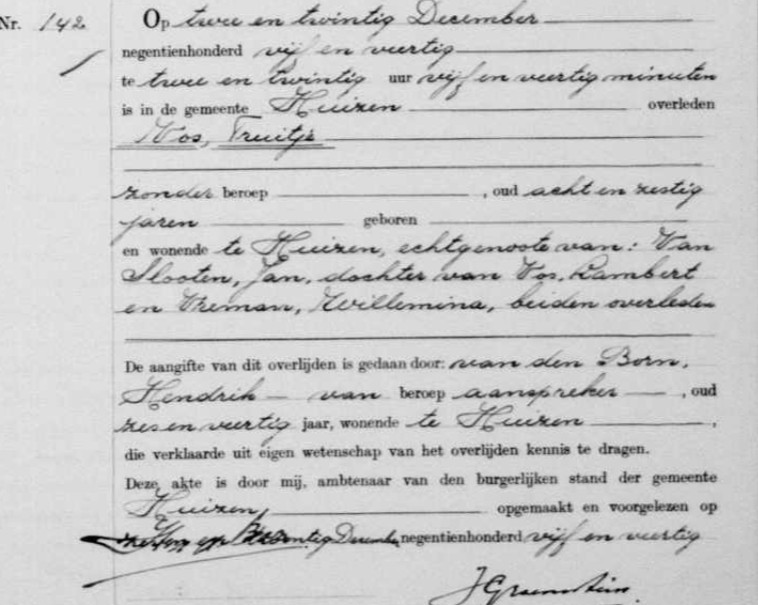 Nr. 142 Op twee en twintig December
negentienhonderd vijf en veertig
te twee en twintig uur vijf en veertig minuten
is in de gemeente Huizen overleden
Vos, Truitje
zonder beroep , oud acht en zestig
jaren geboren
en wonende te Huizen, echtgenoote van: Van
Slooten, Jan, dochter van Vos, Lambert
en Vreman, Willemina, beiden overleden
De aangifte van dit overlijden is gedaan door: van den Born,
Hendrik van beroep aanspreker , oud
zes en veertig jaar, wonende te Huizen ,
die verklaarde uit eigen wetenschap van het overlijden kennis te dragen.
Deze akte is door mij, ambtenaar van den burgerlijken stand der gemeente
Huizen, opgemaakt en voorgelezen op
twintig December negentienhonderd vijf en veertig